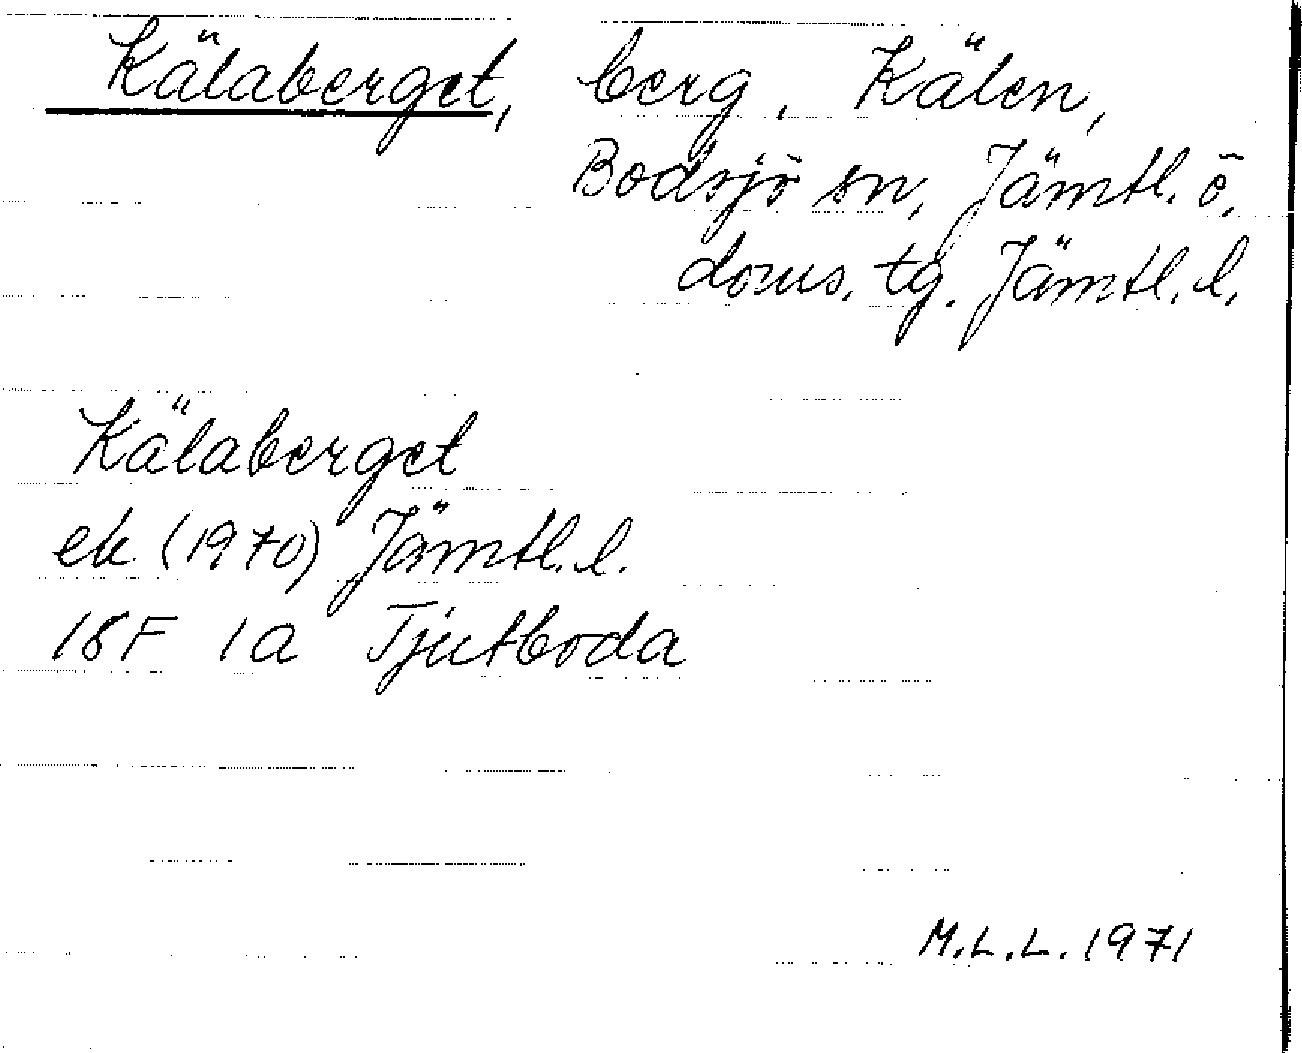 Kälaberget, berg, Kälen,
Bodsjö sn, Jämtl. ö.
doms. tg. Jämtl. l.
Kälaberget
ek (1970) Jämtl. l.
18F 1a Tjutboda
M.L.L. 1971